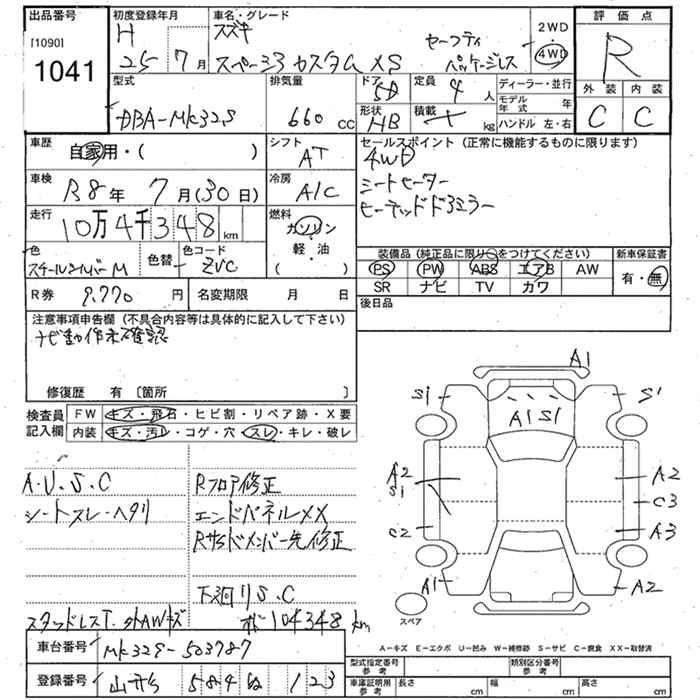 出品番号
[1090]
1041
初度登録年月
H
25 7月
車名・グレード
スズキ
スペーシア カスタム XS
セーフティ
パッケージレス
2WD
4WD
評価点
R
外装 内装
C C
型式
DBA-MK32S
排気量
660 cc
ドア
5D
形状
HB
定員
4人
積載
kg
ディーラー・並行
モデル年式 年
ハンドル 左・右
車歴
自家用・( )
シフト
AT
セールスポイント (正常に機能するものに限ります)
4WD
シートヒーター
ヒーテッドドアミラー
車検
R8年 7月(30日)
冷房
A/C
走行
10万4千348km
燃料
ガソリン
・
軽・油
( )
色
スチールシルバーM
色替
色コード
ZVC
装備品 (純正品に限り○をつけてください)
PS PW ABS エアB AW
SR ナビ TV カワ
新車保証書
有・無
R券 9,770円
名変期限 月 日
後日品
注意事項申告欄 (不具合内容等は具体的に記入して下さい)
ナビ動作未確認
修復歴 有 [箇所 ]
検査員
記入欄
FW キズ・飛石・ヒビ割・リペア跡・X要
内装 キズ・汚レ・コゲ・穴・スレ・キレ・破レ
A・U・S・C
シートスレ・ヘタリ
Rフロア修正
エンドパネルXX
Rサイドメンバー先修正
下廻りS.C
スタッドレスT. 外AWキズ
104348km
A1
S1 S1
A1S1
A2
S1
A2
C3
C2 A3
A1 A2
スペア
A-キズ E-エクボ U-凹み W-補修跡 S-サビ C-腐食 XX-取替済
車台番号 MK32S-503787
登録番号 584 123
型式指定番号
参考
類別区分番号
参考
車庫証明用
参考
長さ cm
幅 cm
高さ cm